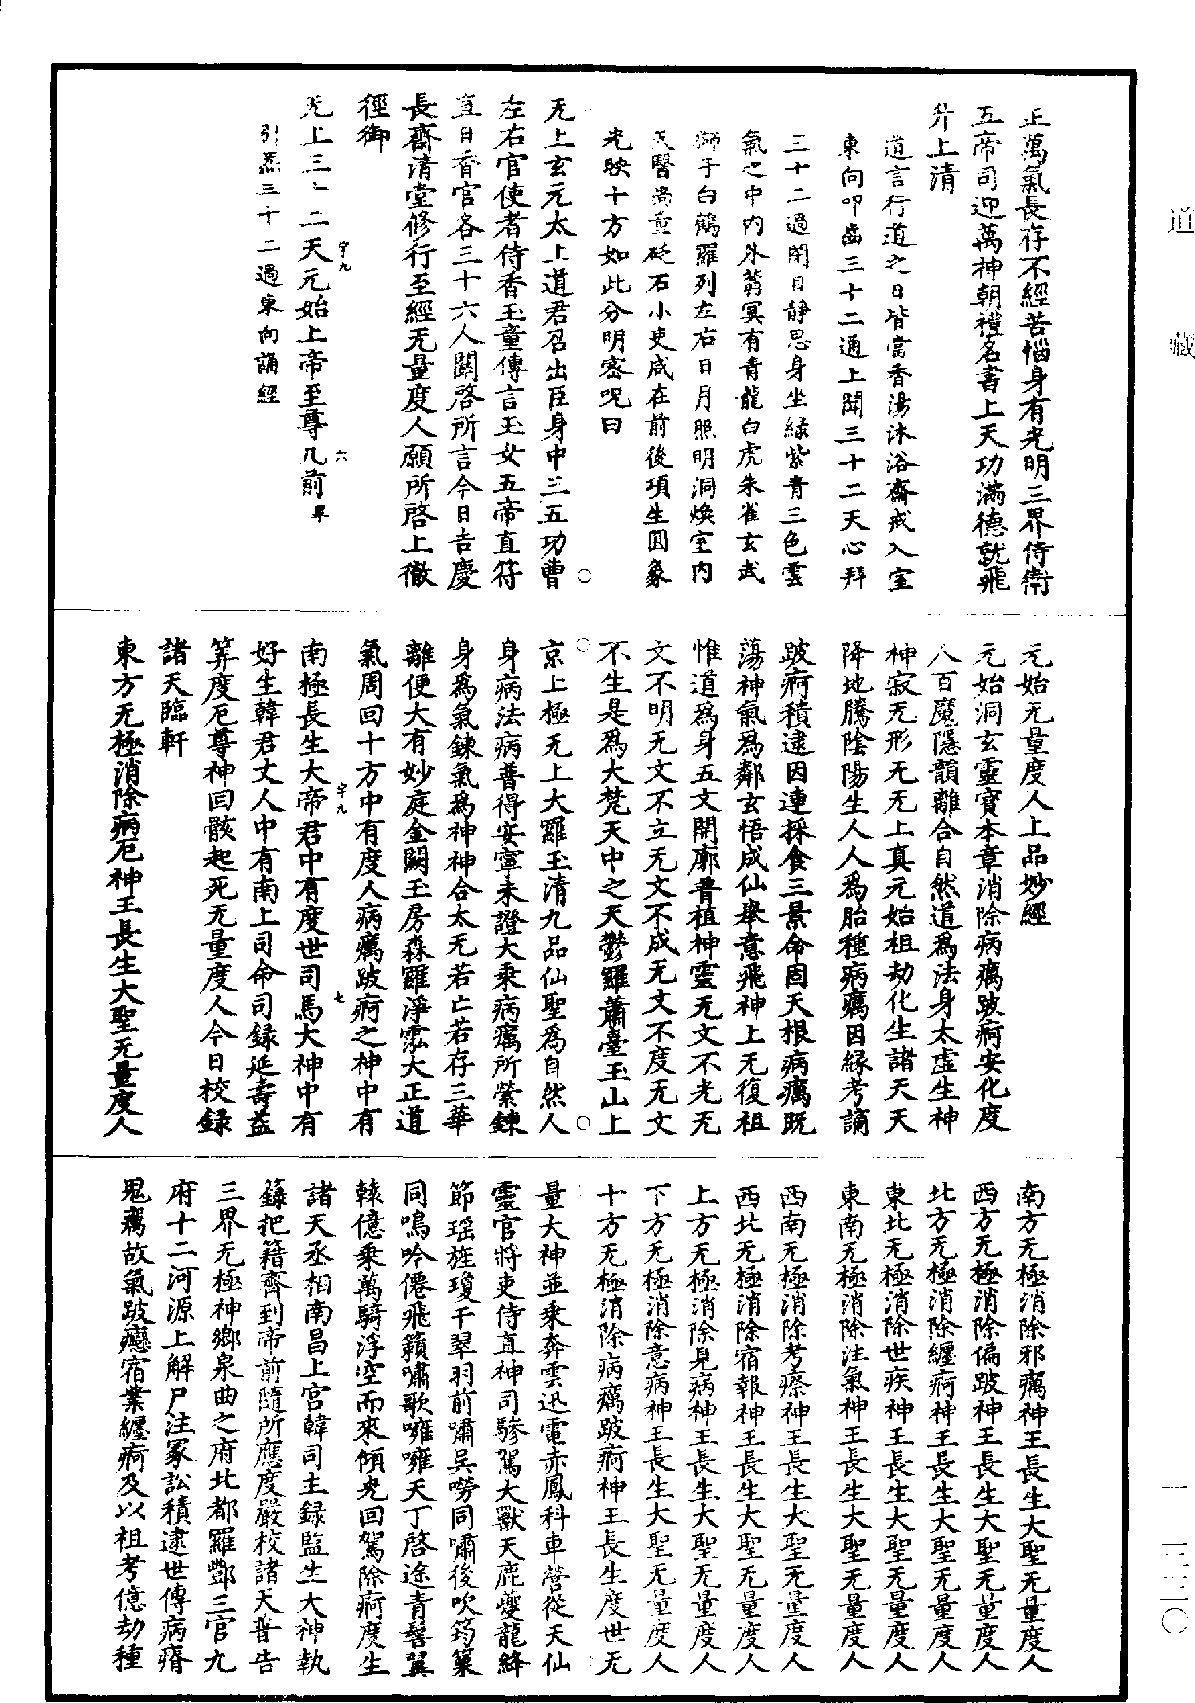 道藏
一—一三二〇
正萬氣長存不經苦惱身有光明三界侍衛
五帝司迎萬神朝禮名書上天功滿德就飛
升上清
道言行道之日皆當香湯沐浴齋戒入室
東向叩齒三十二通上聞三十二天心拜
三十二過閉目靜思身坐綠紫青三色雲
氣之中內外蓊冥有青龍白虎朱雀玄武
獅子白鶴羅列左右日月照明洞煥室內
天醫黃童砭石小吏咸在前後項生圓象
光映十方如此分明密咒曰
无上玄元太上道君召出臣身中三五功曹
左右官使者侍香玉童傳言玉女五帝直符
直日香官各三十六人關啓所言今日吉慶
長齋清堂修行至經无量度人願所啓上徹
徑御
无上三十二天元始上帝至尊几前畢
宇九 六
引炁三十二過東向誦經
元始无量度人上品妙經
元始洞玄靈寶本章消除病癘跛痾安化度
人百魔隱韻離合自然道爲法身太虛生神
神寂无形无无上真元始祖劫化生諸天天
降地騰陰陽生人人爲胎種病癘因緣考謫
跛痾積逮因連採食三景命固天根病癘既
蕩神氣爲鄰玄悟成仙舉意飛神上无復祖
惟道爲身五文開廓普植神靈无文不光无
文不明无文不立无文不成无文不度无文
不生是爲大梵天中之天鬱羅蕭臺玉山上
京上極无上大羅玉清九品仙聖爲自然人
身病法病普得安寧未證大乘病癘所縈鍊
身爲氣鍊氣爲神神合太无若亡若存三華
離便大有妙庭金闕玉房森羅淨泓大正道
氣周回十方中有度人病癘跛痾之神中有
宇九 七
南極長生大帝君中有度世司馬大神中有
好生韓君丈人中有南上司命司錄延壽益
筭度厄尊神回骸起死无量度人今日校錄
諸天臨軒
東方无極消除病厄神王長生大聖无量度人
南方无極消除邪癘神王長生大聖无量度人
西方无極消除偏跛神王長生大聖无量度人
北方无極消除纏痾神王長生大聖无量度人
東北无極消除世疾神王長生大聖无量度人
東南无極消除注氣神王長生大聖无量度人
西南无極消除考瘵神王長生大聖无量度人
西北无極消除宿報神王長生大聖无量度人
上方无極消除見病神王長生大聖无量度人
下方无極消除意病神王長生大聖无量度人
十方无極消除病癘跛痾神王長生度世无
量大神並乘奔雲迅電赤鳳科車營從天仙
靈官將吏侍直神司驂駕大獸天鹿夔龍絳
節瑤旌瓊干翠羽前嘯吳嘮同嘯後吹筠篥
同鳴吟僊飛籟嘯歌嗈嗈天丁啓途青髻翼
轅億乘萬騎浮空而來傾光回駕除痾度生
諸天丞相南昌上宮韓司主錄監生大神執
籙把籍齊到帝前隨所應度嚴校諸天普告
三界无極神鄉泉曲之府北都羅酆三官九
府十二河源上解尸注冢訟積逮世傳病瘠
鬼癘故氣跛癔宿業纏痾及以祖考億劫種